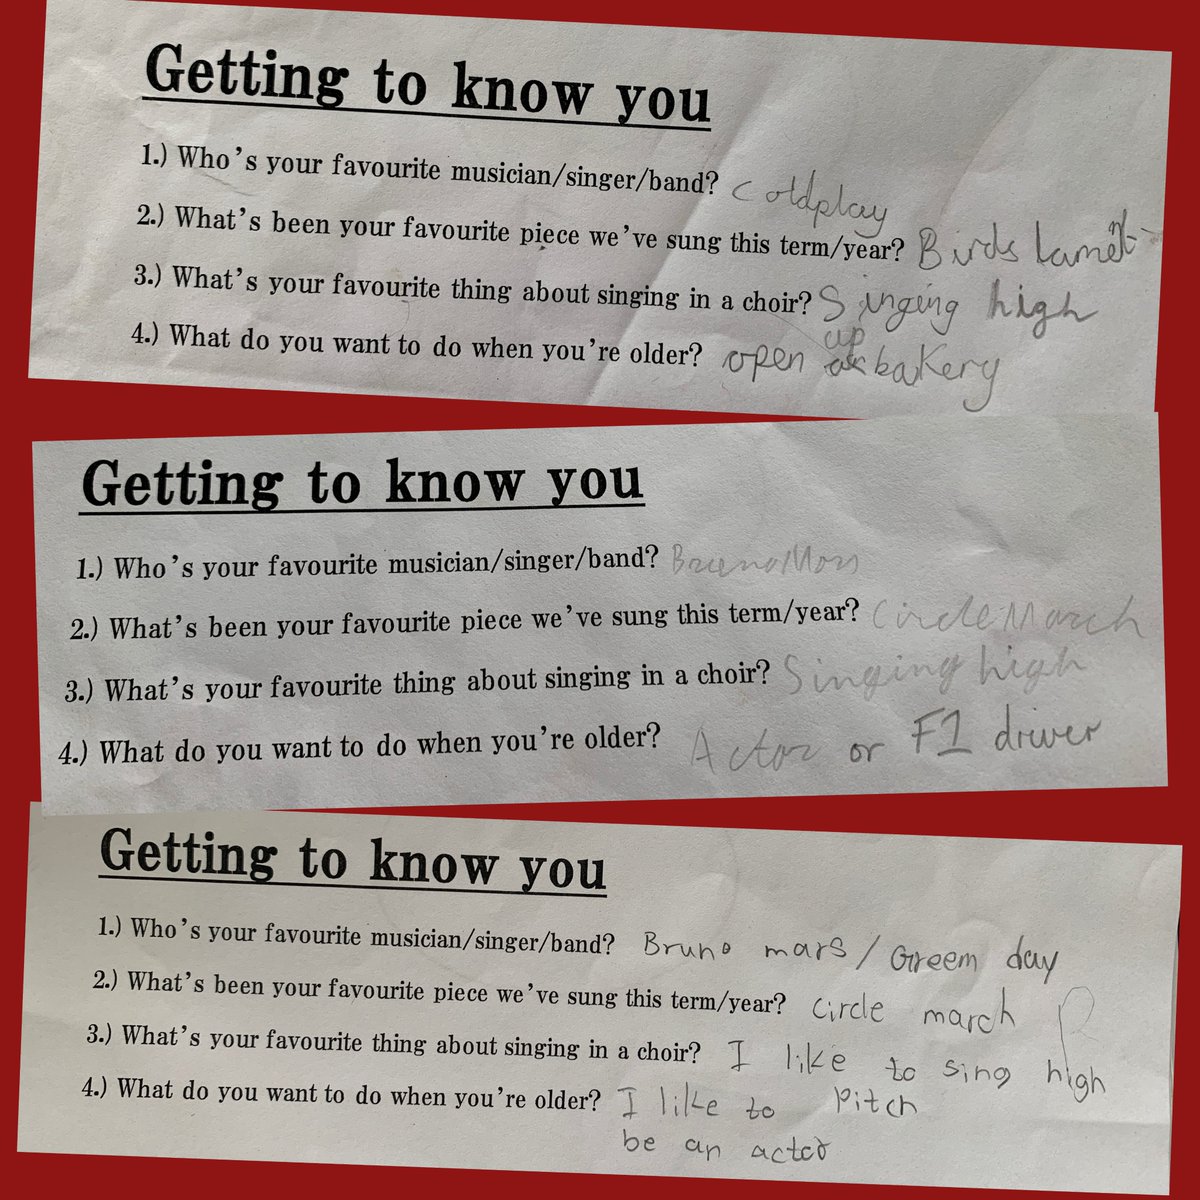 Getting to know you
1.) Who's your favourite musician/singer/band? Coldplay
2.) What's been your favourite piece we've sung this term/year? Birds lament
3.) What's your favourite thing about singing in a choir? Singing high
4.) What do you want to do when you're older? open up bakery
Getting to know you
1.) Who's your favourite musician/singer/band? Bruno Mars
2.) What's been your favourite piece we've sung this term/year? Circle March
3.) What's your favourite thing about singing in a choir? Singing high
4.) What do you want to do when you're older? Actor or F1 driver
Getting to know you
1.) Who's your favourite musician/singer/band? Bruno mars / Greem day
2.) What's been your favourite piece we've sung this term/year? circle march
3.) What's your favourite thing about singing in a choir? I like to sing high
pitch
4.) What do you want to do when you're older? I like to
be an actor